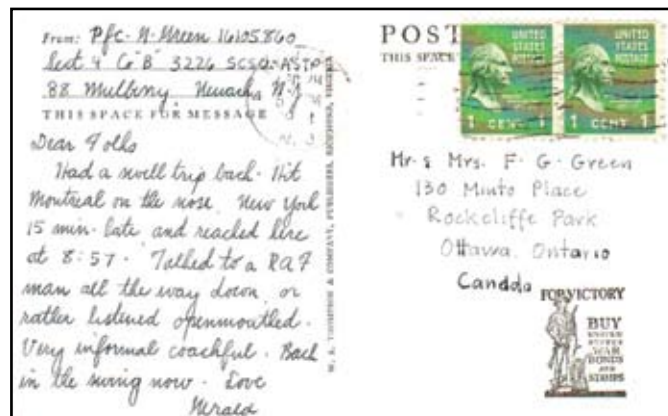 From: Pfc. N. Green 16105860
Sect 4 Co "B" 3226 SCSU-ASTP
88 Mulberry, Newark, N.J.
THIS SPACE FOR MESSAGE
Dear Folks
Had a swell trip back. Hit
Montreal on the nose. New York
15 min. late and reached here
at 8:57. Talked to a RAF
man all the way down, or
rather listened openmouthed.
Very informal coachful. Back
in the swing now. Love
Merald
W. M. THOMPSON & COMPANY, PUBLISHERS, RICHMOND, VIRGINIA
POST
THIS SPACE
UNITED
STATES
POSTAGE
1 CENT 1
UNITED
STATES
POSTAGE
1 CENT 1
Mr. & Mrs. F. G. Green
130 Minto Place
Rockcliffe Park
Ottawa, Ontario
Canada
FOR VICTORY
BUY
UNITED
STATES
WAR
BONDS
AND
STAMPS